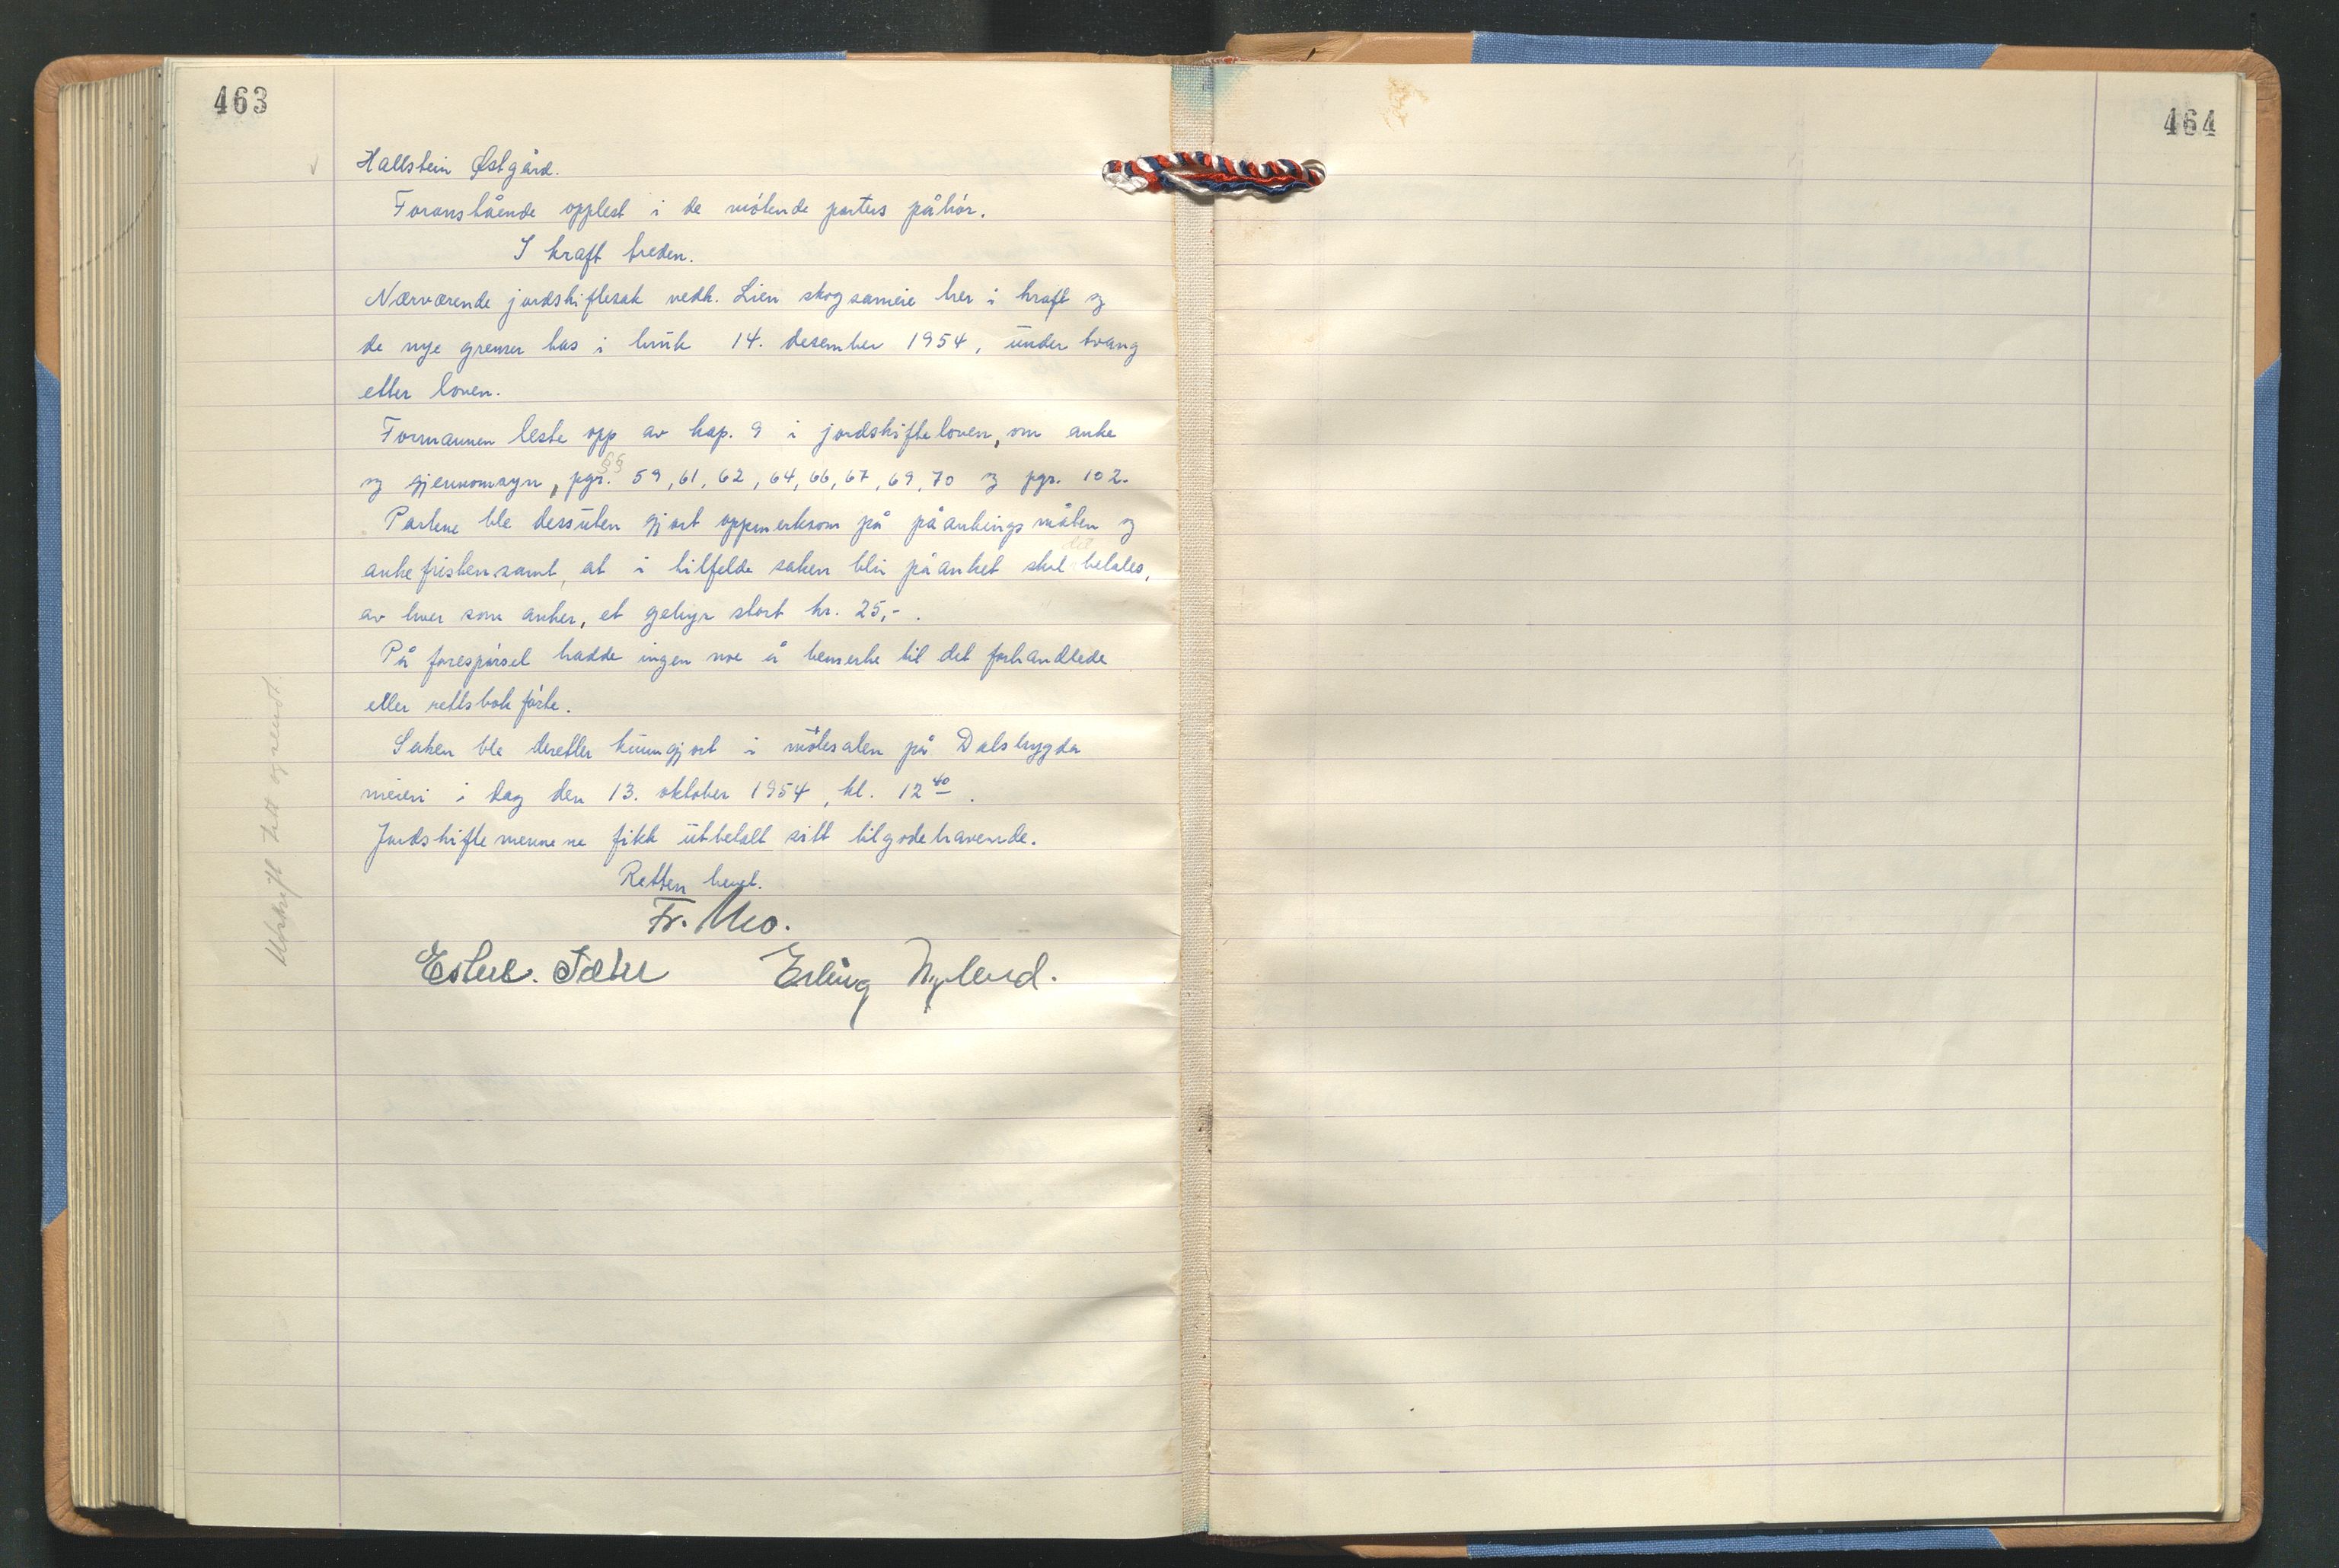 463
Hallstein Østgård.
Foranstående opplest i de møtende parters påhør.
I kraft treden.
Nærværende jordskiftesak vedk. Lien skogsameie trer i kraft og
de nye grenser tas i bruk 14. desember 1954, under tvang
etter loven.
Formannen leste opp av kap. 9 i jordskifteloven, om anke
§§
og gjennomsyn, pgr. 59, 61, 62, 64, 66, 67, 69, 70 og pgr. 102.
Partene ble dessuten gjort oppmerksom på påankingsmåten og
det
ankefristen samt, at i tilfelde saken blir påanket skal betales,
av hver som anker, et gebyr stort kr. 25,-.
På forespørsel hadde ingen noe å bemerke til det forhandlede
eller rettsbokførte.
Saken ble deretter kunngjort i møtesalen på Dalsbygda
meieri i dag den 13. oktober 1954, kl. 12 40.
Jordskiftemennene fikk utbetalt sitt tilgodehavende.
Retten hevet.
Fr. Mo.
Esten. Sæter Erling Nyland.
Utskrift tatt og sendt.
464